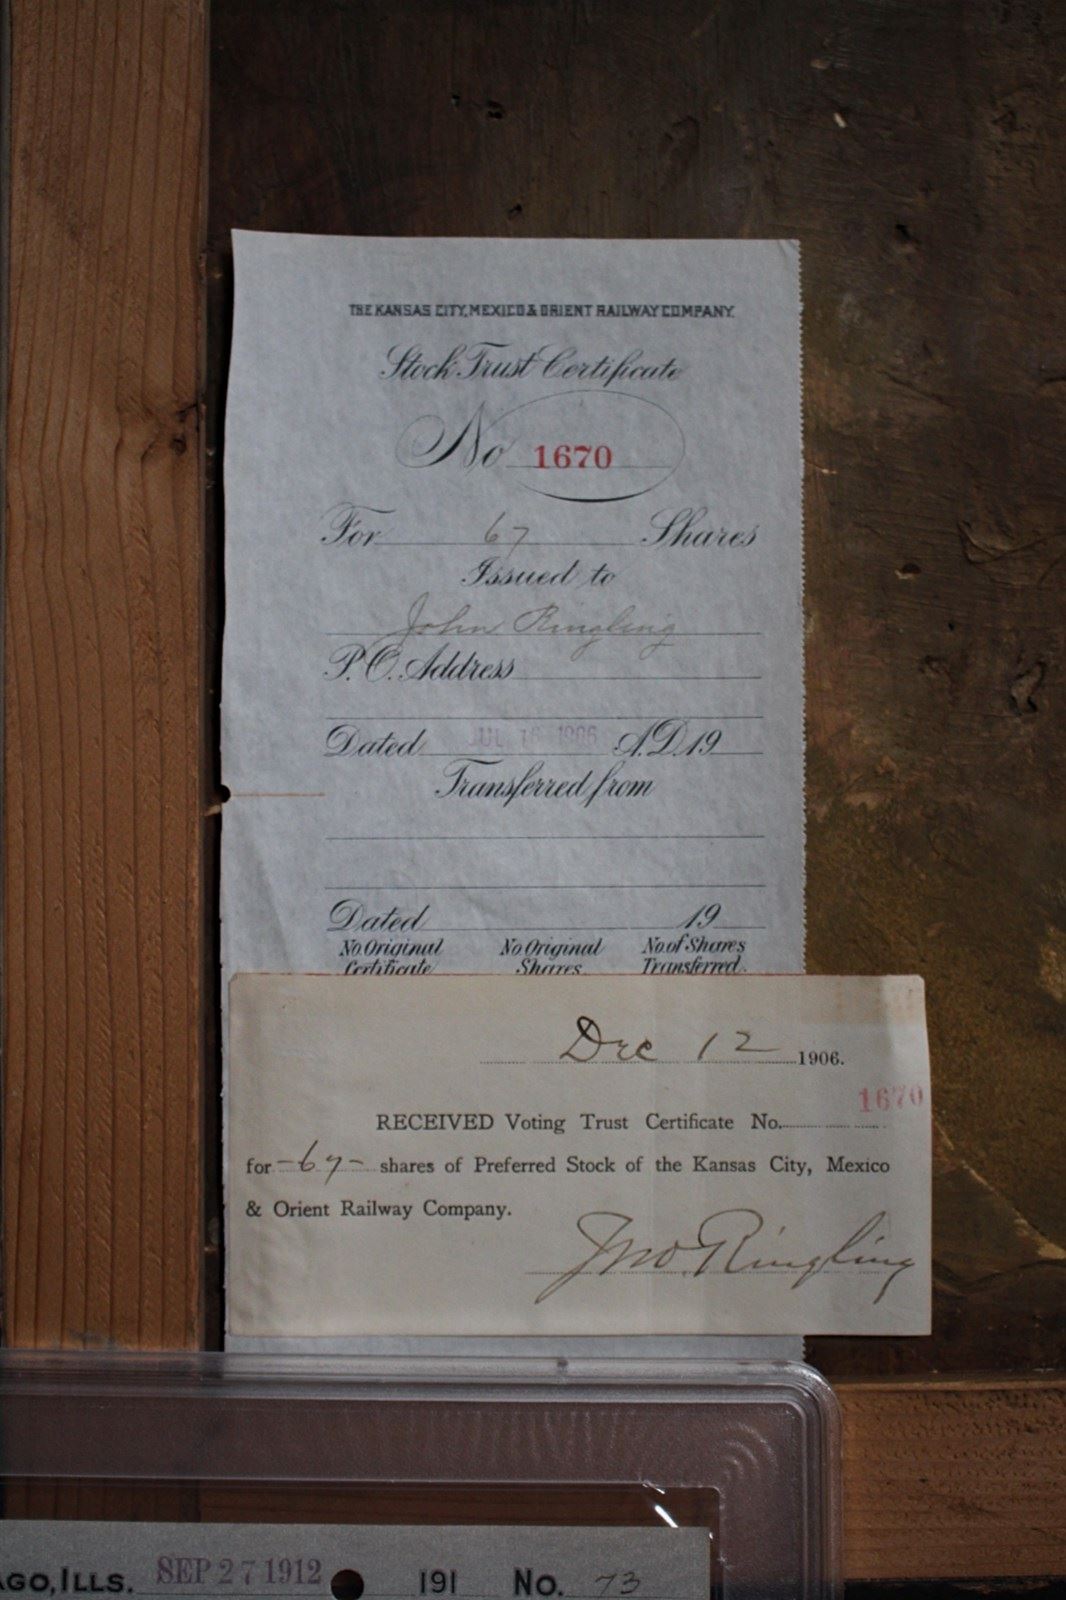 THE KANSAS CITY, MEXICO & ORIENT RAILWAY COMPANY.
Stock Trust Certificate
No 1670
For 67 Shares
Issued to
John Ringling
P. O. Address
Dated JUL 16 1906 A.D. 19
Transferred from
Dated 19
No. Original Certificate
No Original Shares
No. of Shares Transferred.
Dec 12 1906.
1670
RECEIVED Voting Trust Certificate No.
for -67- shares of Preferred Stock of the Kansas City, Mexico
& Orient Railway Company.
Jno. Ringling
AGO, ILLS. SEP 27 1912 191 No. 73